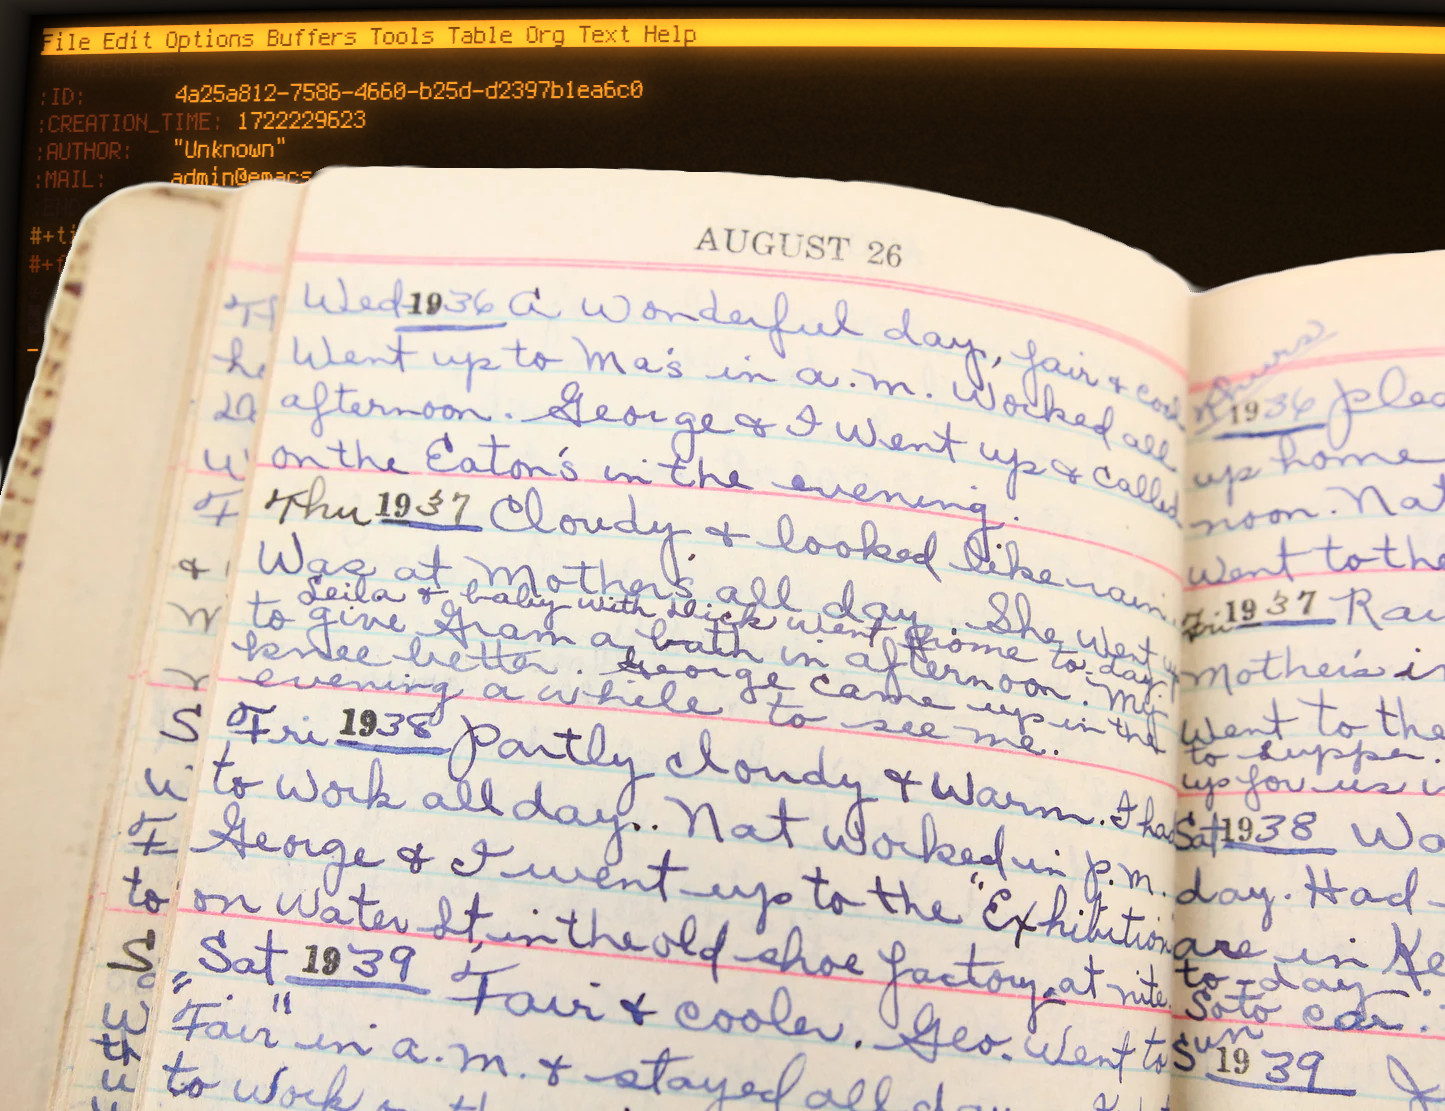 File Edit Options Buffers Tools Table Org Text Help
:ID: 4a25a812-7586-4660-b25d-d2397b1ea6c0
:CREATION_TIME: 1722229623
:AUTHOR: "Unknown"
:MAIL: admin@emacs
#+ti
#+f
AUGUST 26
Wed 1936 A Wonderful day, fair & cool
Went up to Ma's in a.m. Worked all
afternoon. George & I Went up & called
on the Eaton's in the evening.
Thu 1937 Cloudy & looked like rain.
Was at Mother's all day. She went up
Leila & baby with Dick went home to-day.
to give Gram a bath in afternoon. My
knee better. George came up in the
evening a while to see me.
Fri 1938 Partly cloudy & Warm. I had
to work all day.. Nat worked in p.m.
George & I went up to the "Exhibition
on Water St, in the old shoe factory, at nite.
Sat 1939 Fair & cooler. Geo. Went to
"Fair" in a.m. & stayed all day.
to work
Thurs
1936 plea
up home
noon. Nat
Went to the
Fri 1937 Rai
Mother's in
Went to the
to supper.
up for us
Sat 1938 Wa
day. Had
are in Ke
to-day.
So to car.
Sun 1939